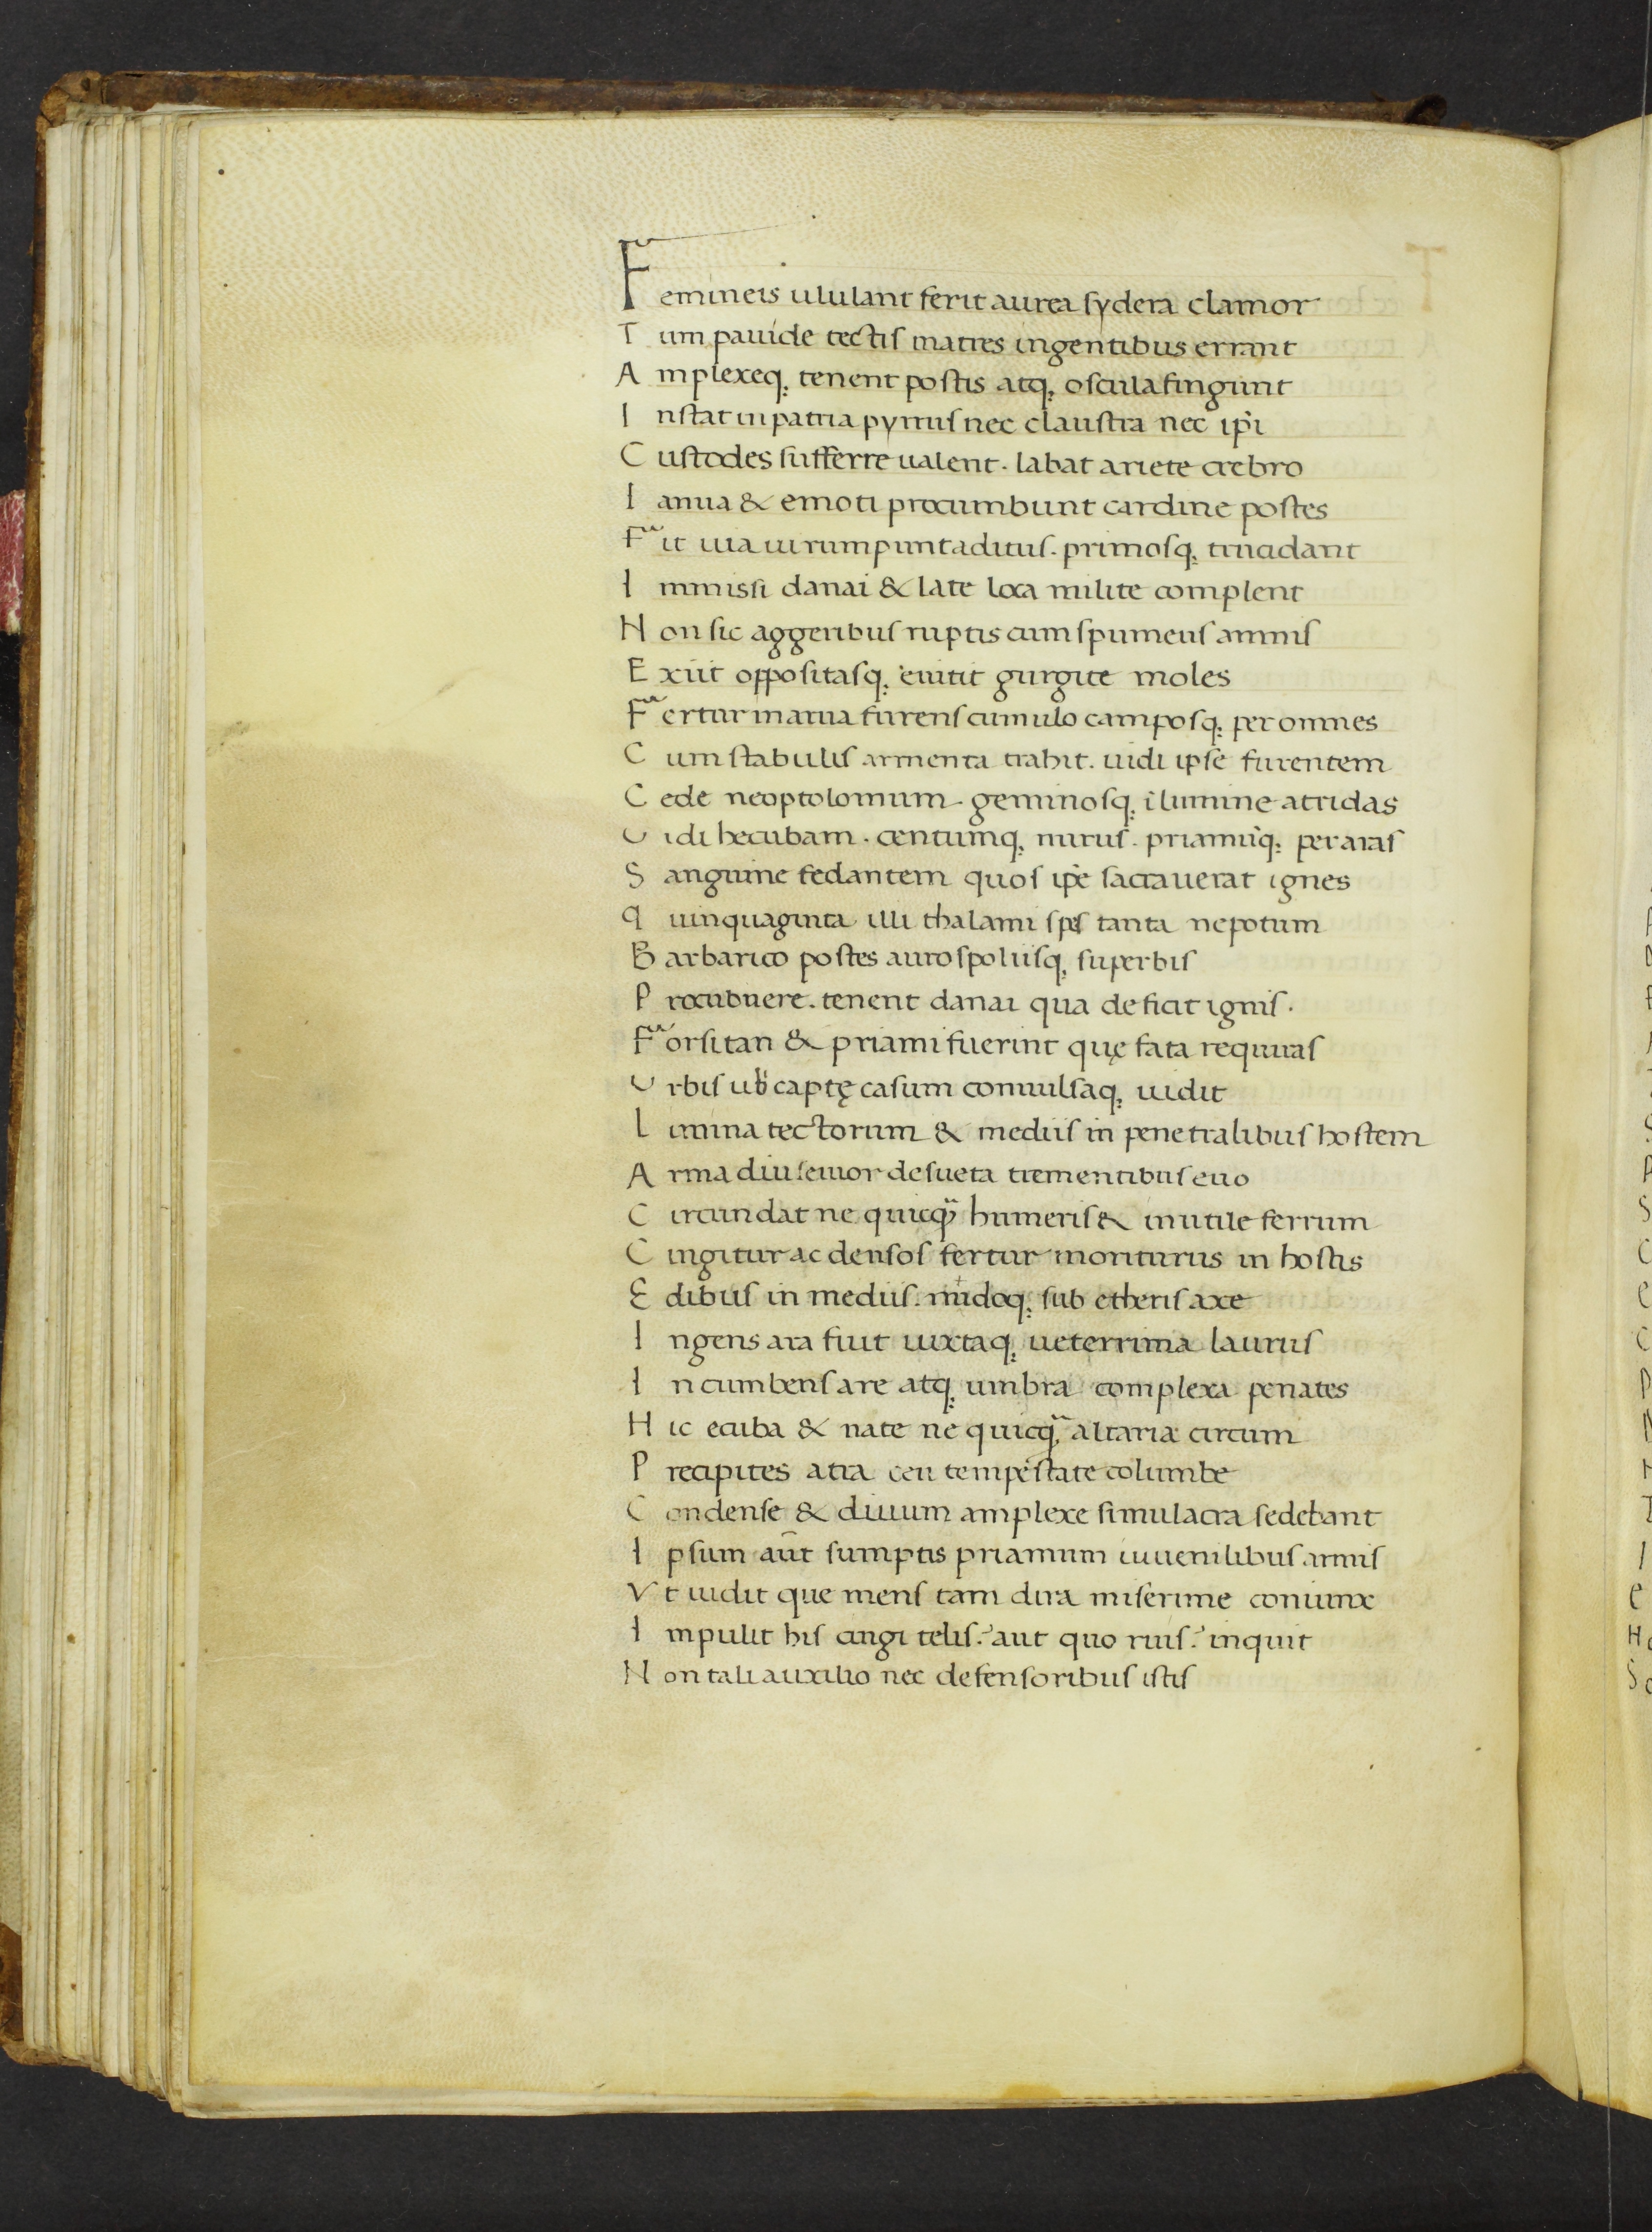 Femineis ululant ferit aurea sydera clamor
Tum pauide tectis matres ingentibus errant
Amplexeq; tenent postis atq; oscula fingunt
Instat in patria pyrrus nec claustra nec ip̃i
Custodes sufferre ualent. labat ariete crebro
Ianua & emoti procumbunt cardine postes
Fit uia ui rumpunt aditus. primosq; trucidant
Immissi danai & late loca milite complent
Non sic aggeribus ruptis cum spumeus amnis
Exiit oppositasq; euitit gurgite moles
Fertur in arua furens cumulo camposq; per omnes
Cum stabulis armenta trahit. uidi ipse furentem
Cede neoptolomum. geminosq; ĩ lumine atridas
Uidi hecubam. centumq; nurus. priamũq; per aras
Sanguine fedantem quos ip̃e sacrauerat ignes
Quinquaginta illi thalami spes tanta nepotum
Barbarico postes auro spoliisq; superbis
Procubuere. tenent danai qua deficit ignis.
Forsitan & priami fuerint quę fata requiras
Urbis ubi captę casum conuulsaq; uidit
Limina tectorum & mediis in penetralibus hostem
Arma diu senior desueta trementibus euo
Circundat ne quicq̃ humeris & inutile ferrum
Cingitur ac densos fertur moriturus in hostis
Edibus in mediis. nudoq; sub etheris axe
Ingens ara fuit iuxtaq; ueterrima laurus
Incumbens are atq; umbra complexa penates
Hic ecuba & nate ne quicq̃ altaria circum
Precipites atra ceu tempestate columbe
Condense & diuum amplexe simulacra sedebant
Ipsum aũt sumptis priamum iuuenilibus armis
Vt uidit que mens tam dira miserime coniunx
Impulit his cingi telis? aut quo ruis? inquit
Non tali auxilio nec defensoribus istis